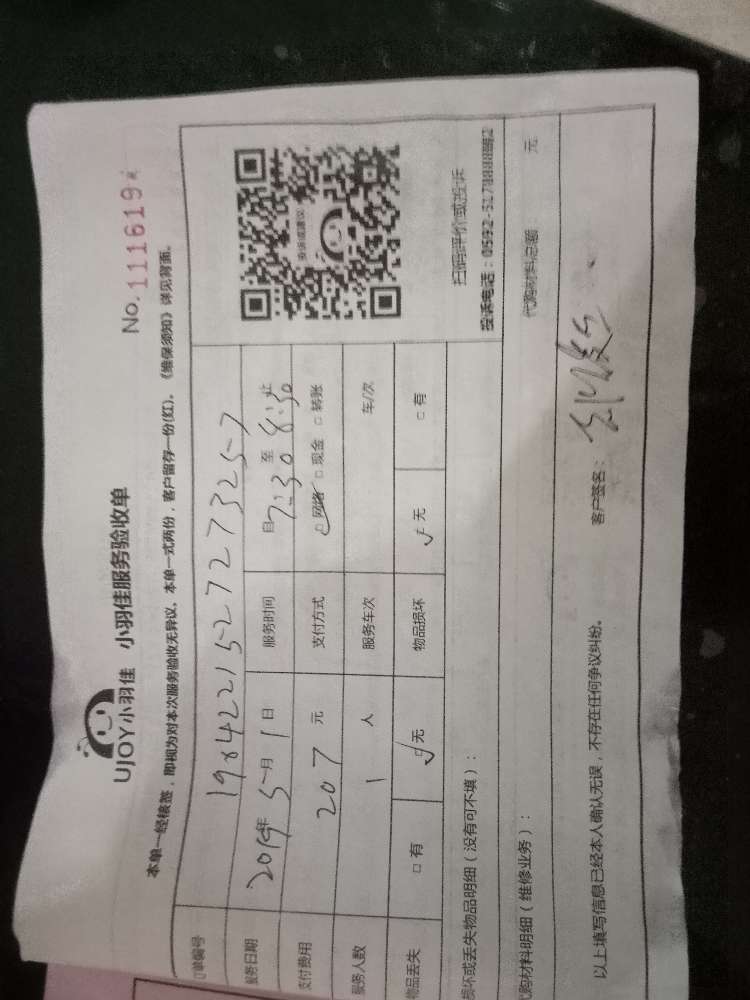 UJOY小羽佳 小羽佳服务验收单
No.111619
本单一经核签，即视为对本次服务验收无异议。本单一式两份，客户留存一份(红)。《维保须知》详见背面。
订单编号
服务日期 2019年 5月 1日 服务时间 自 7:30 至 8:30 止
支付费用 207 元 支付方式 网络 □现金 □转账
服务人数 1 人 服务车次 车/次
物品丢失 □有 ☑无 物品损坏 ☑无 □有
投诉或建议
扫码评价或投诉
投诉电话：0592-5178888
损坏或丢失物品明细（没有可不填）：
代购材料明细（维修业务）： 代购材料总额： 元
以上填写信息已经本人确认无误，不存在任何争议纠纷。 客户签名：